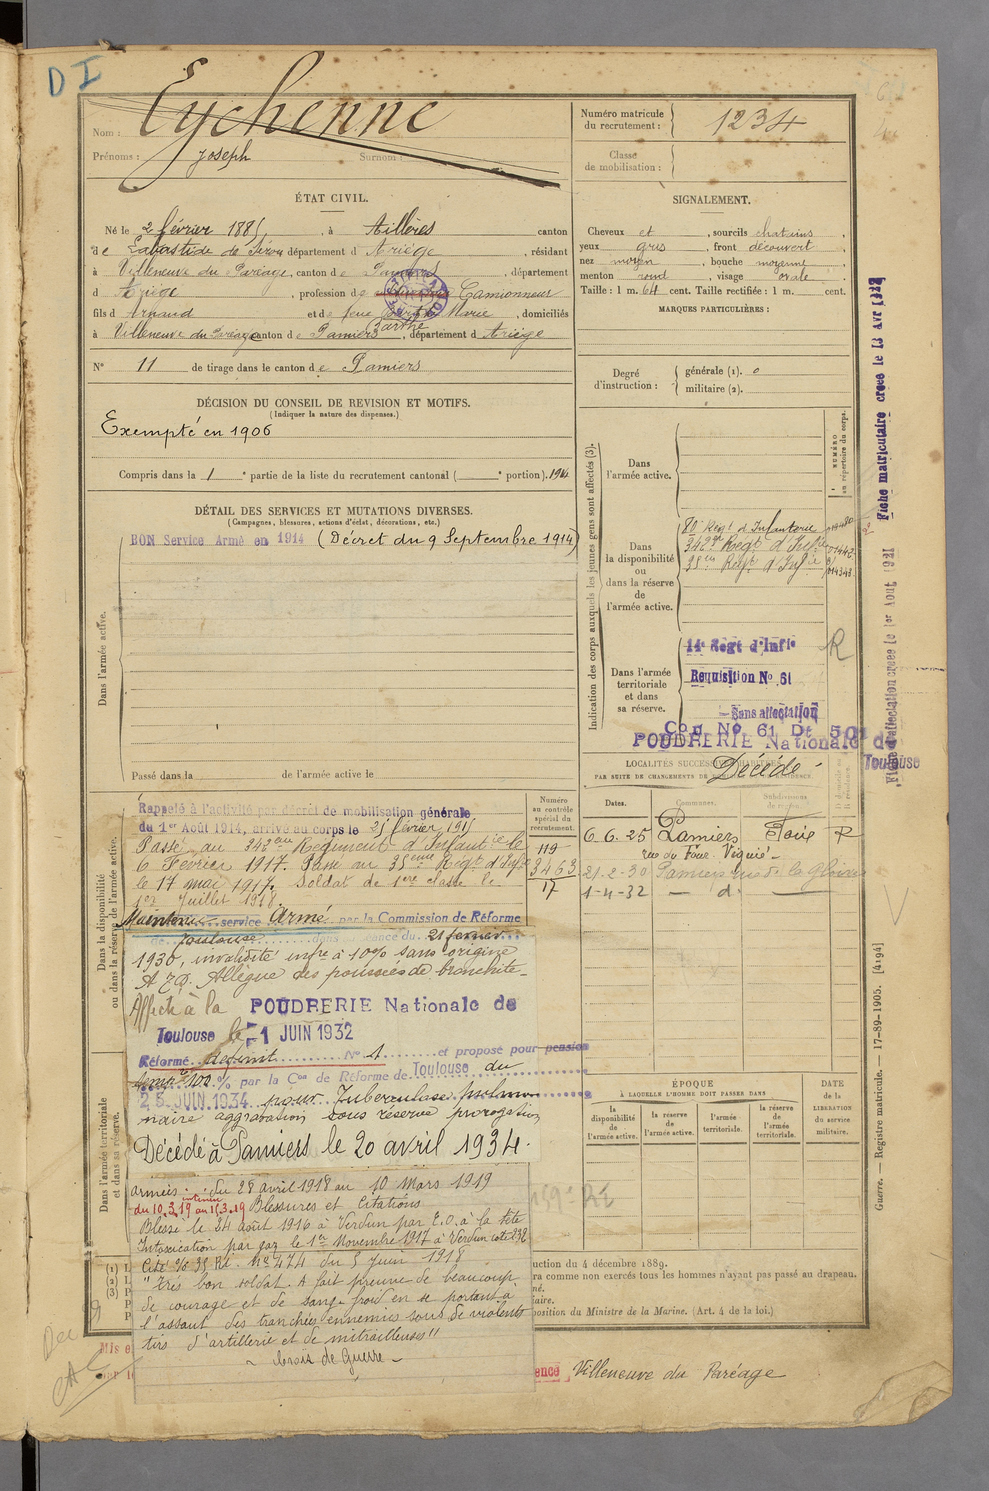 D I
Nom : Eychenne
Prénoms : Joseph Surnom :
Numéro matricule du recrutement : 1234
Classe de mobilisation :
ÉTAT CIVIL.
Né le 2 février 1885, à Aillères canton
de Labastide de Sérou département d Ariège, résidant
à Villeneuve du Paréage, canton de Pamiers, département
d Ariège, profession de Camionneur
fils d Arnaud et de feue Marie, domiciliés
Barthe
à Villeneuve du Paréage canton de Pamiers, département d Ariège
N° 11 de tirage dans le canton de Pamiers
DÉCISION DU CONSEIL DE REVISION ET MOTIFS.
(Indiquer la nature des dispenses.)
Exempté en 1906
Compris dans la 1e partie de la liste du recrutement cantonal ( e portion). 1914
DÉTAIL DES SERVICES ET MUTATIONS DIVERSES.
(Campagnes, blessures, actions d'éclat, décorations, etc.)
BON Service Armé en 1914 (Décret du 9 Septembre 1914)
Dans l'armée active.
Passé dans la de l'armée active le
SIGNALEMENT.
Cheveux et, sourcils chatains,
yeux gris, front découvert,
nez moyen, bouche moyenne,
menton rond, visage ovale.
Taille : 1 m. 64 cent. Taille rectifiée : 1 m. cent.
MARQUES PARTICULIÈRES :
Degré d'instruction : générale (1). 0
militaire (2).
Indication des corps auxquels les jeunes gens sont affectés (3).
NUMÉRO au répertoire du corps.
Dans l'armée active.
Dans la disponibilité ou dans la réserve de l'armée active.
80 Regt d'Infanterie
342e Regt d'Inf
35eme Regt d'Infie
Dans l'armée territoriale et dans sa réserve.
14e Regt d'Infie
R
Requisition No 61
Sans affectation
Con No 61 Dt 501
POUDRERIE Nationale de
Toulouse
Fiche matriculaire créée le 13 Avr 1928
LOCALITÉS SUCCESSIVES HABITÉES
PAR SUITE DE CHANGEMENTS DE DOMICILE OU DE RÉSIDENCE
Décédé
Dates. Communes. Subdivisions de région.
6.6.25 Pamiers Foix R
21-2-30 Pamiers rue de la Gloire
1-4-32 — d° —
Dans la disponibilité ou dans la réserve de l'armée active.
Numéro au contrôle spécial du recrutement.
119
3463
17
Rappelé à l'activité par décret de mobilisation générale
du 1er Août 1914, arrivé au corps le 25 février 1915
Passé au 342eme Régiment d'Infanterie le
6 Février 1917. Passé au 35eme Régt d'Infie
le 17 mai 1917. Soldat de 1ere classe le
1er Juillet 1918
Maintenu service Armé par la Commission de Réforme
de Toulouse dans séance du 21 février
1930, invalidité infre à 10% sans origine
Allègue des poussées de bronchite
Affecté à la POUDRERIE Nationale de
Toulouse le 1 JUIN 1932
Réformé définit N° 1 et proposé pour pension
100 % par la Con de Réforme de Toulouse du
25 JUIN 1934 pour Tuberculose pulmo
naire aggravation sous réserve prorogation
Décédé à Pamiers le 20 avril 1934.
Dans l'armée territoriale et dans sa réserve.
armées : du 28 avril 1918 au 10 Mars 1919
intérieur
du 10.3.19 au 15.3.19 Blessures et Citations
Blessé le 24 août 1916 à Verdun par E.O. à la tête
Intoxication par gaz le 1er Novembre 1917 à Verdun cote 232
Cité % 35 RI. No 474 du 5 Juin 1918
"Très bon soldat. A fait preuve de beaucoup
de courage et de sang-froid en se portant à
l'assaut des tranchées ennemies sous de violents
tirs d'artillerie et de mitrailleuses"
~ Croix de Guerre ~
ÉPOQUE
À LAQUELLE L'HOMME DOIT PASSER DANS
la disponibilité de l'armée active.
la réserve de l'armée active.
l'armée territoriale.
la réserve de l'armée territoriale.
DATE de la LIBÉRATION du service militaire.
uction du 4 décembre 1889.
ra comme non exercés tous les hommes n'ayant pas passé au drapeau.
né.
iaire.
position du Ministre de la Marine. (Art. 4 de la loi.)
ence Villeneuve du Paréage
Guerre. — Registre matricule. — 17-89-1905. [4194]